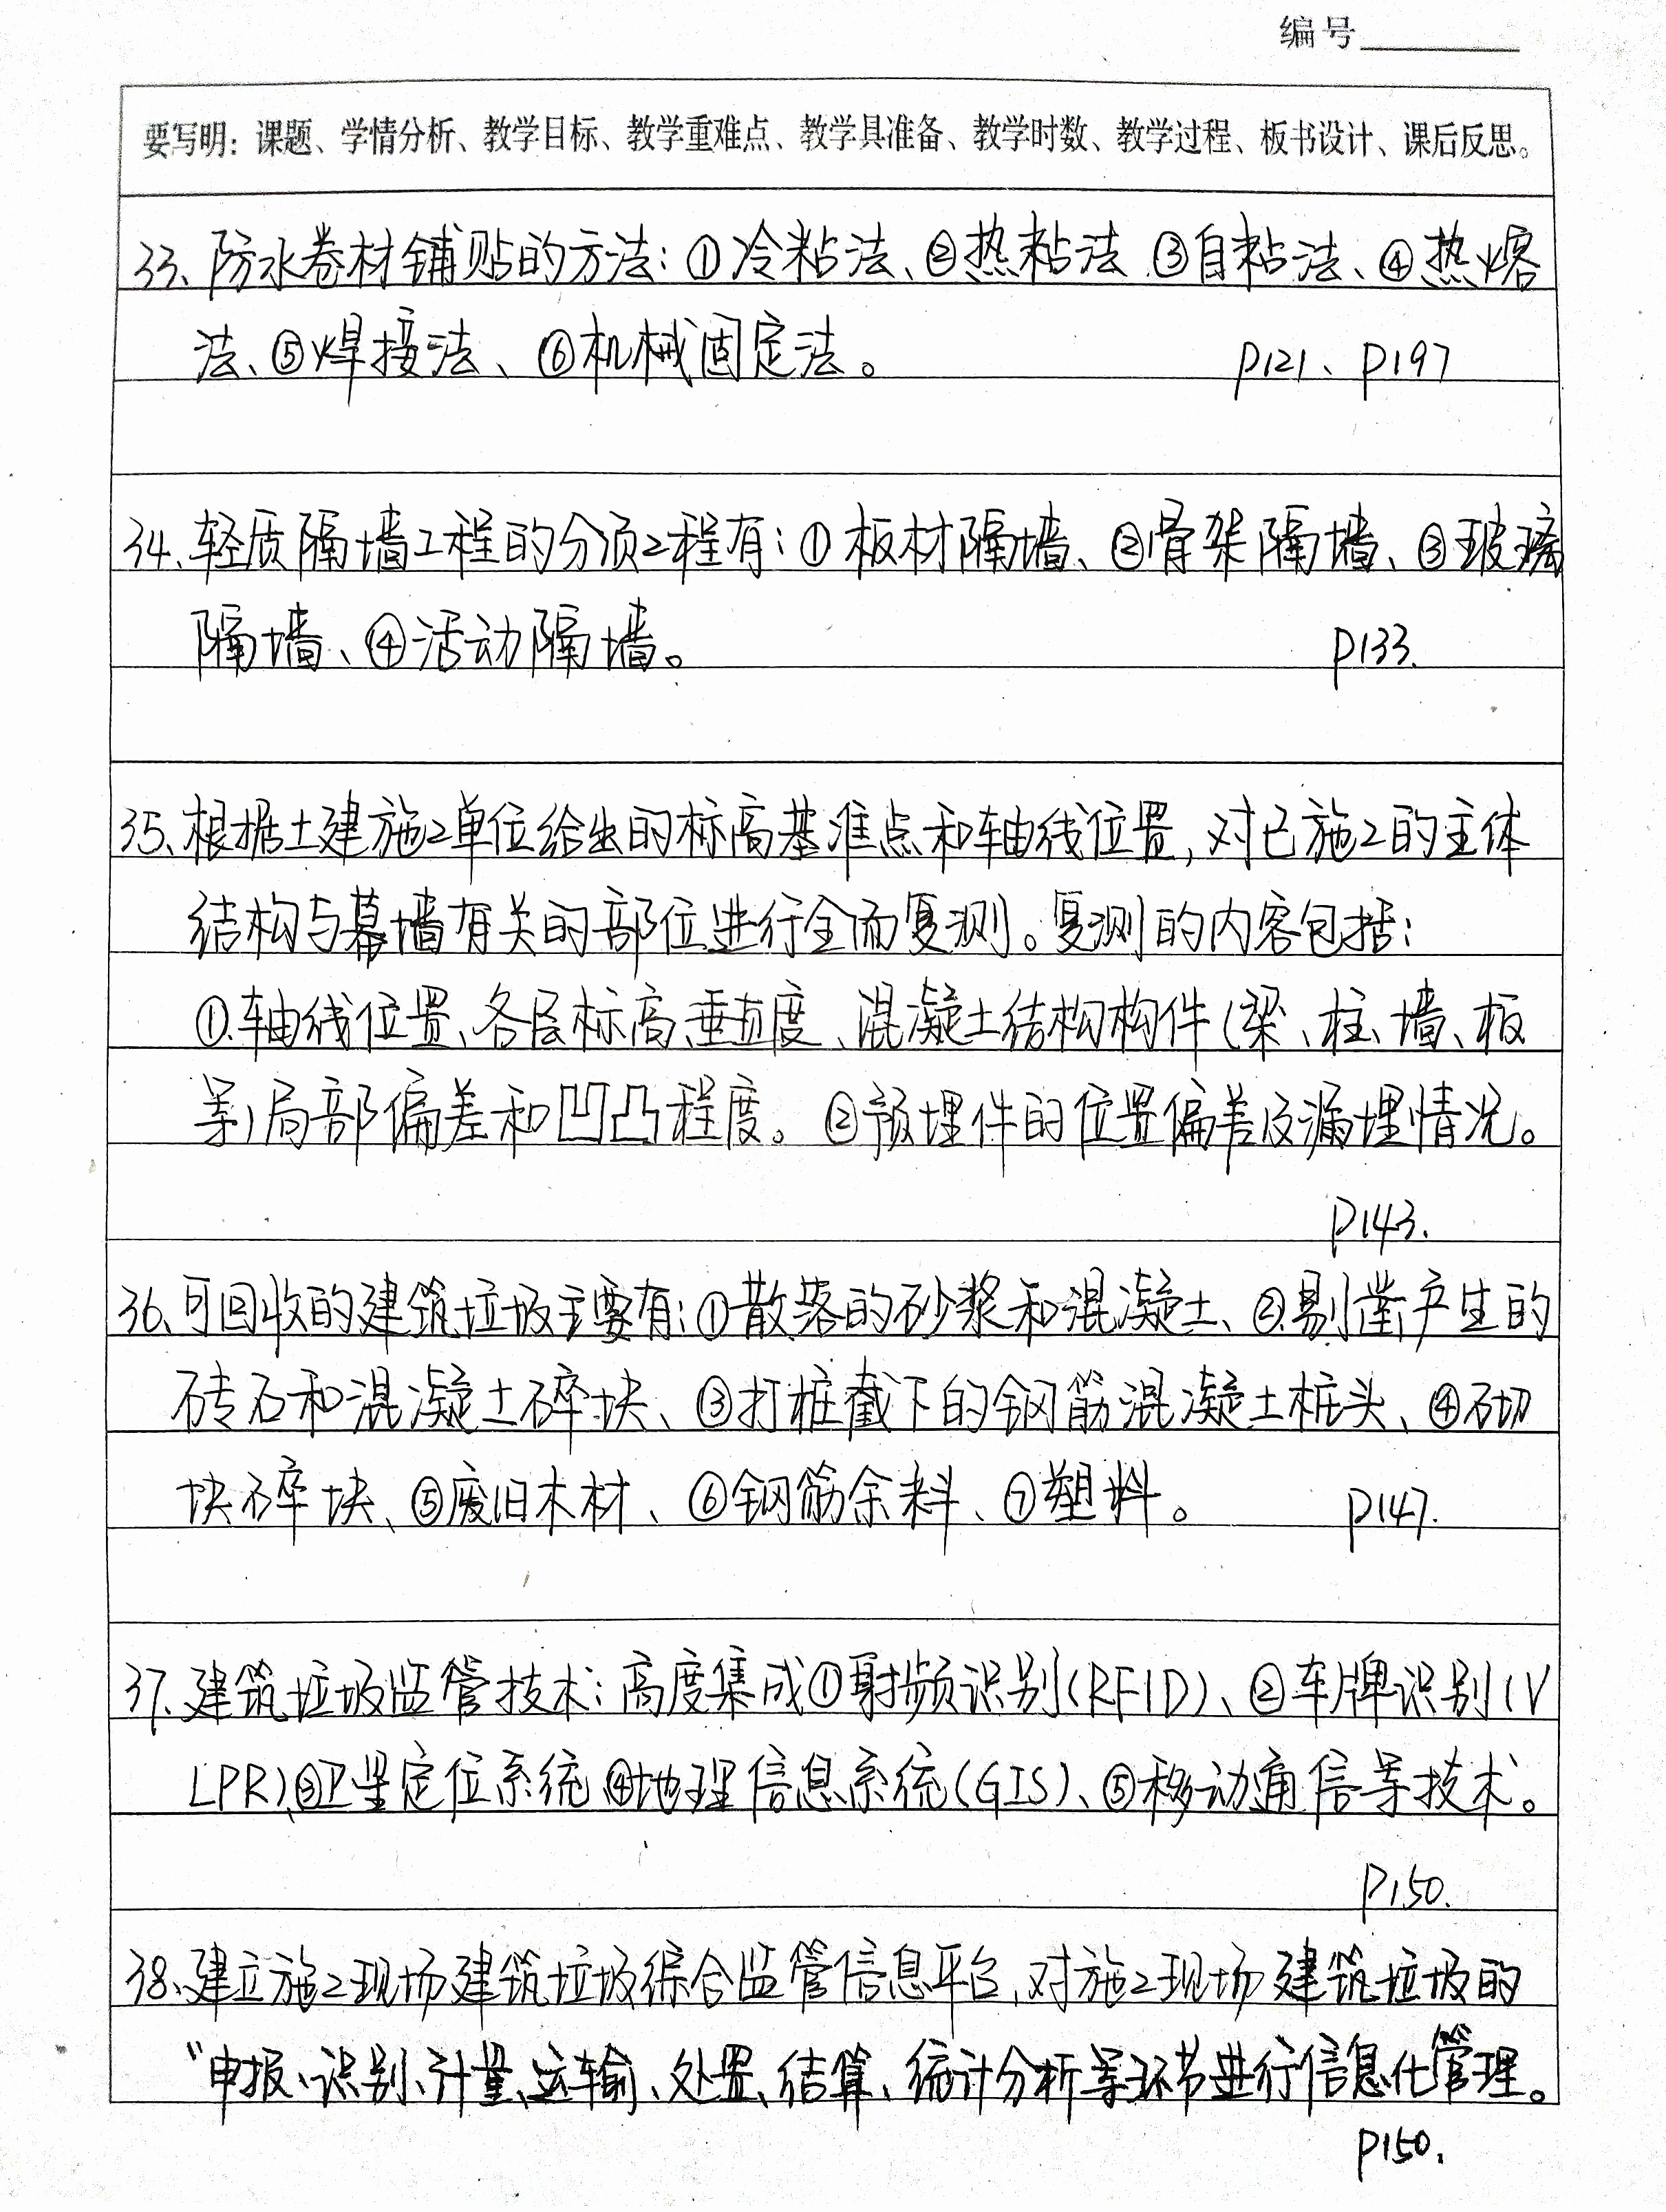 编号
要写明：课题、学情分析、教学目标、教学重难点、教学具准备、教学时数、教学过程、板书设计、课后反思。
33、防水卷材铺贴的方法：①冷粘法、②热粘法③自粘法、④热熔
法、⑤焊接法、⑥机械固定法。 P121、P197
34、轻质隔墙工程的分项工程有：①板材隔墙、②骨架隔墙、③玻璃
隔墙、④活动隔墙。 P133.
35、根据土建施工单位给出的标高基准点和轴线位置，对已施工的主体
结构与幕墙有关的部位进行全面复测。复测的内容包括：
①.轴线位置、各层标高、垂直度、混凝土结构构件（梁、柱、墙、板
等）局部偏差和凹凸程度。②预埋件的位置偏差及漏埋情况。
P143.
36、可回收的建筑垃圾主要有：①散落的砂浆和混凝土、②.剔凿产生的
砖石和混凝土碎块、③打桩截下的钢筋混凝土桩头、④砌
块碎块、⑤废旧木材、⑥钢筋余料、⑦塑料。 P147.
37、建筑垃圾监管技术：高度集成①射频识别（RFID）、②车牌识别（V
LPR）、③卫星定位系统④地理信息系统（GIS）、⑤移动通信等技术。
P150.
38、建立施工现场建筑垃圾综合监管信息平台，对施工现场建筑垃圾的
“申报、识别、计量、运输、处置、结算、统计分析等环节进行信息化管理。
P150.